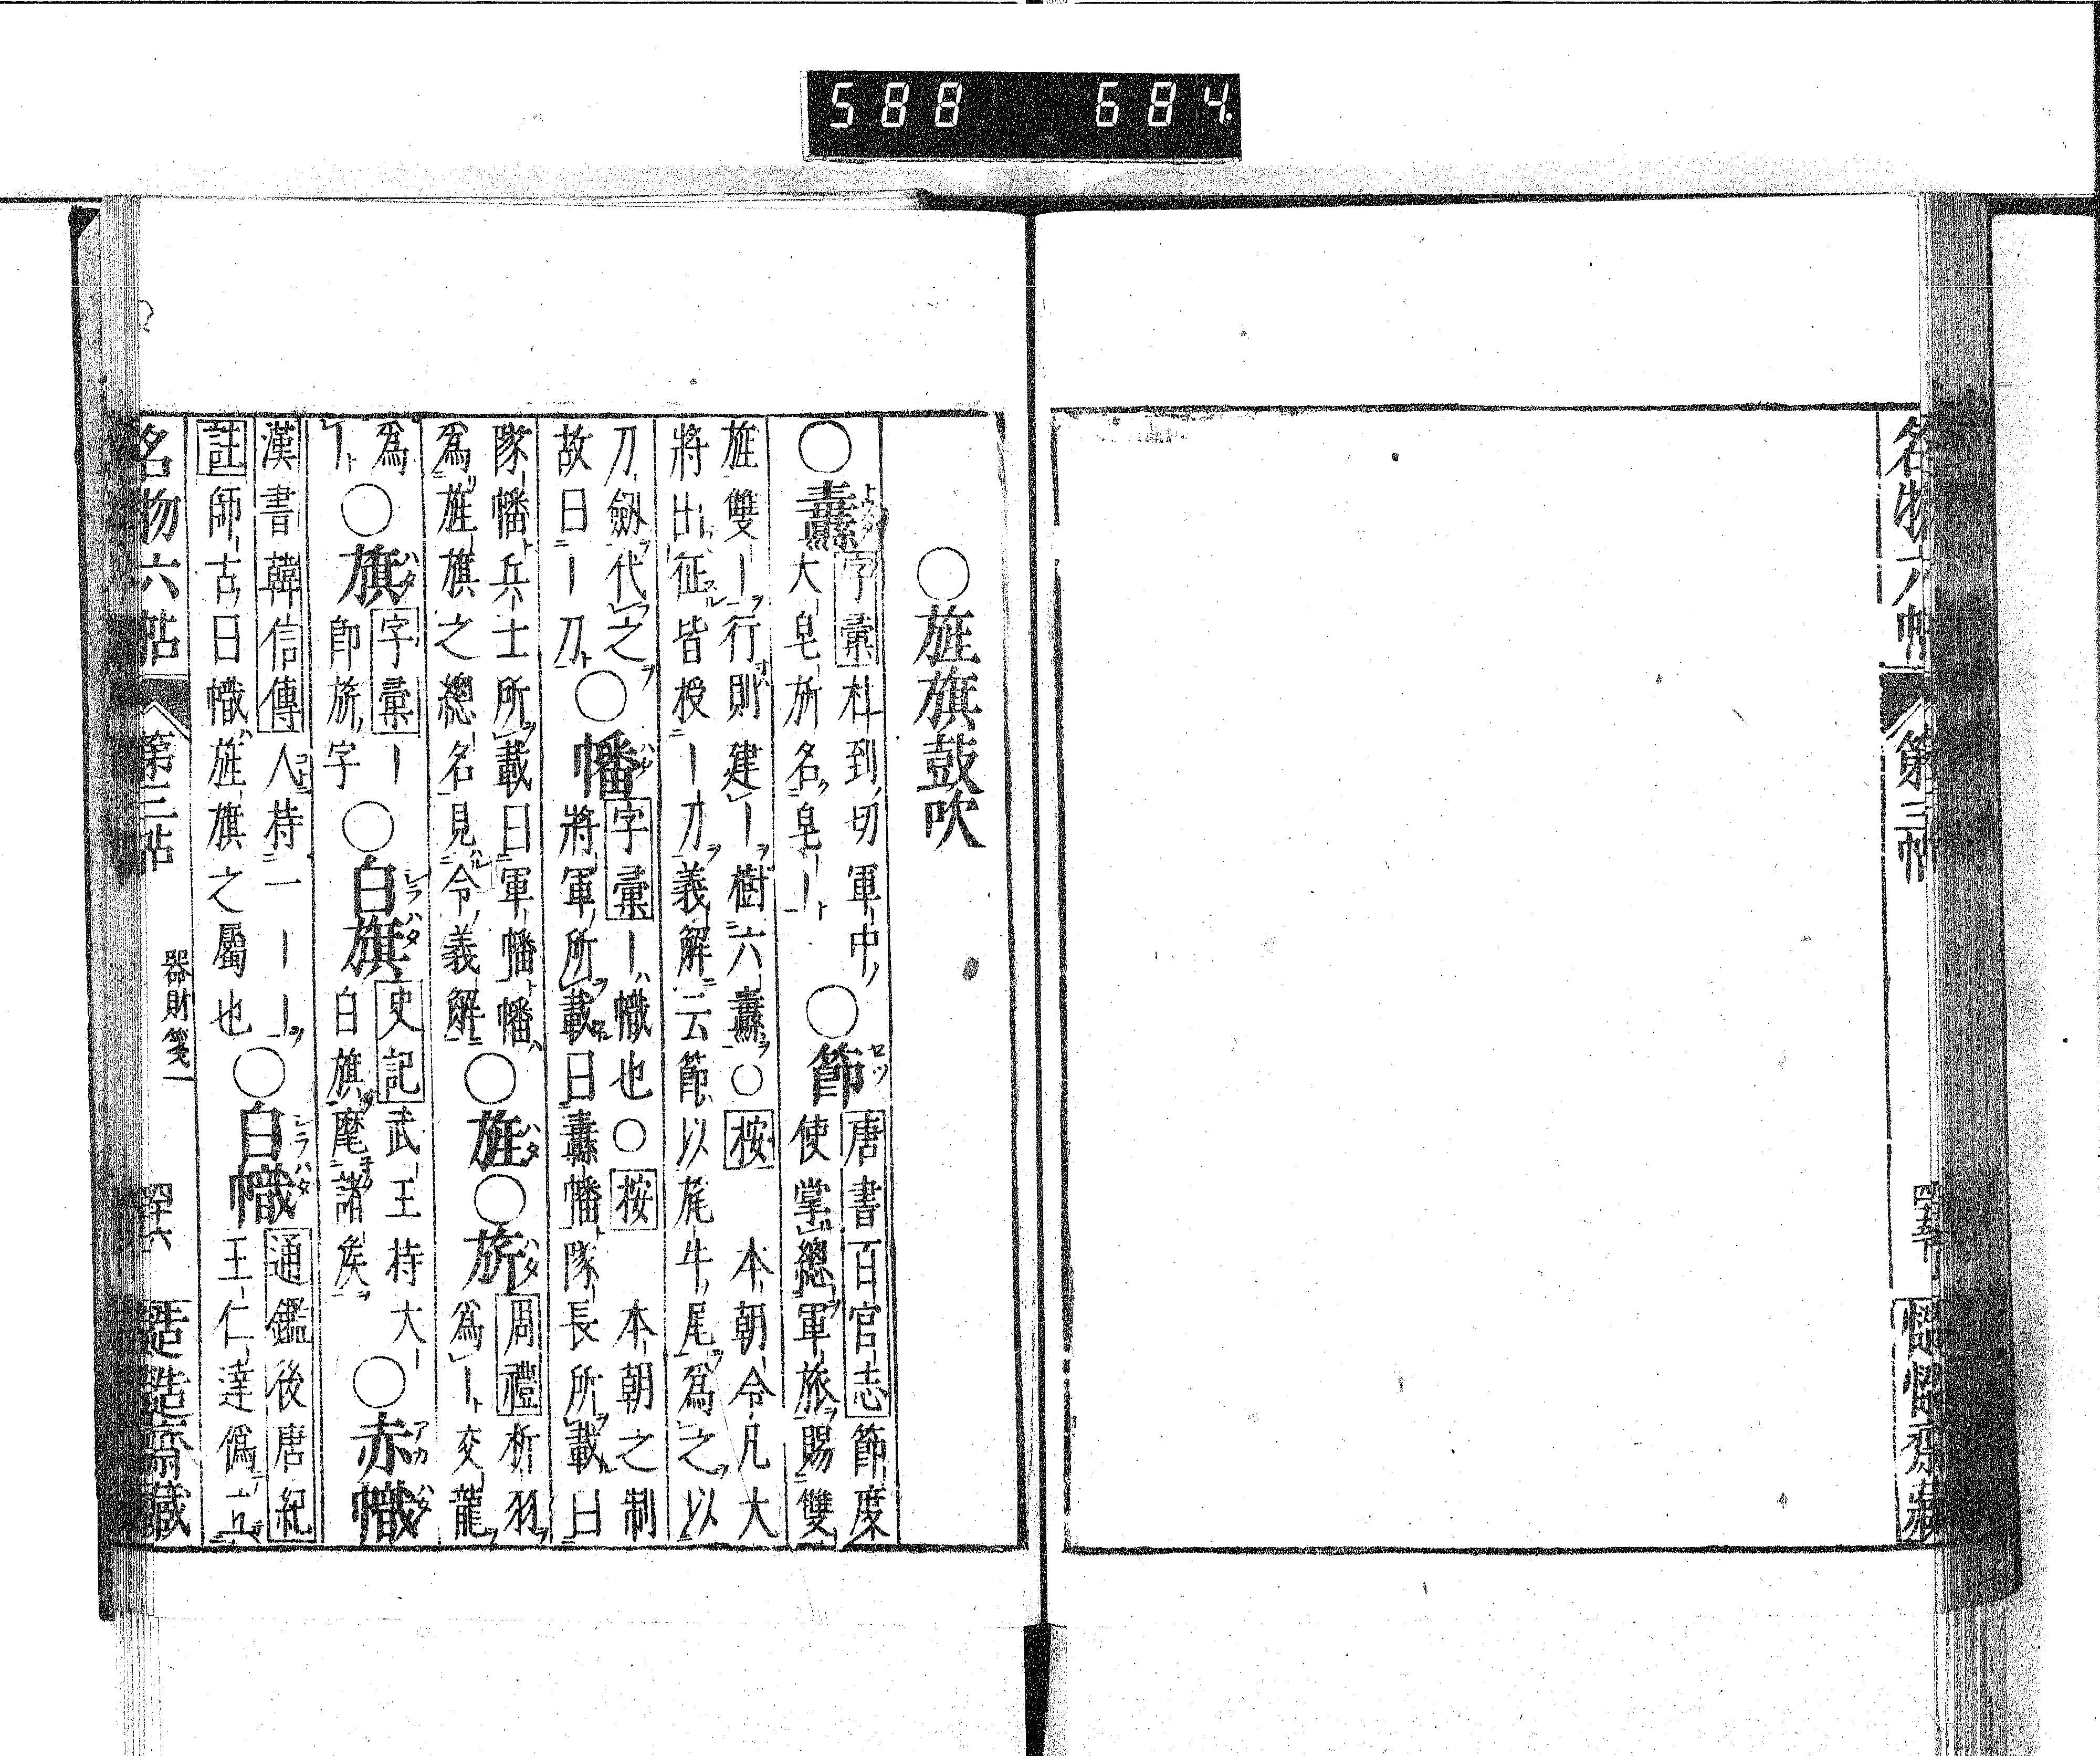 588 684
名物六帖 第三帖 四十五 慥慥齋藏
○旌旗鼓吹
○纛 字彙杜到切軍中
大皂斾名皂｜ ○節 唐書百官志節度
使掌總軍旅賜雙
旌雙｜行則建｜樹六纛○按 本朝令凡大
將出征皆授｜刀義解云節以旄牛尾爲之以
刀劔代之 ○幡 字彙｜幟也○按 本朝之制
故曰｜刀 將軍所載曰纛幡隊長所載曰
隊幡兵士所載曰軍幡幡 ○旌 ○旂 周禮析羽
爲旌旗之總名見令義解 爲｜交龍
爲
｜ ○旗 字彙｜
即旂字 ○白旗 史記武王持大｜
白旗麾諸矦 ○赤幟
漢書韓信傳人持一｜｜
註師古曰幟旌旗之屬也 ○白幟 通鑑後唐紀
王仁達僞立
名物六帖 第三帖 器財箋一 四十六 慥慥齋藏